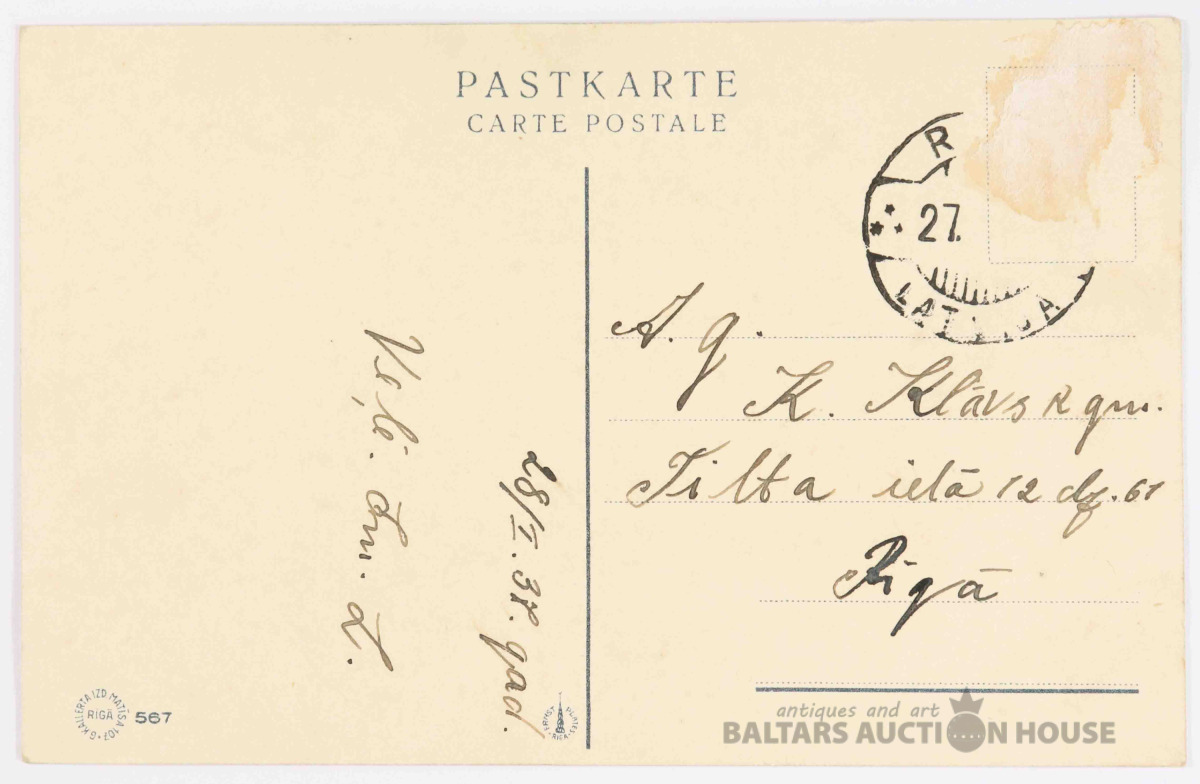 PASTKARTE
CARTE POSTALE
R
27.
LATVIJA
A. g.
K. Klāvs R gm.
Tilta ielā 12 dz. 61
Rīgā
28/I. 38. gad.
G. KALLERTA IZD. MATĪSA 107
RĪGĀ
567
antiques and art
BALTARS AUCTION HOUSE